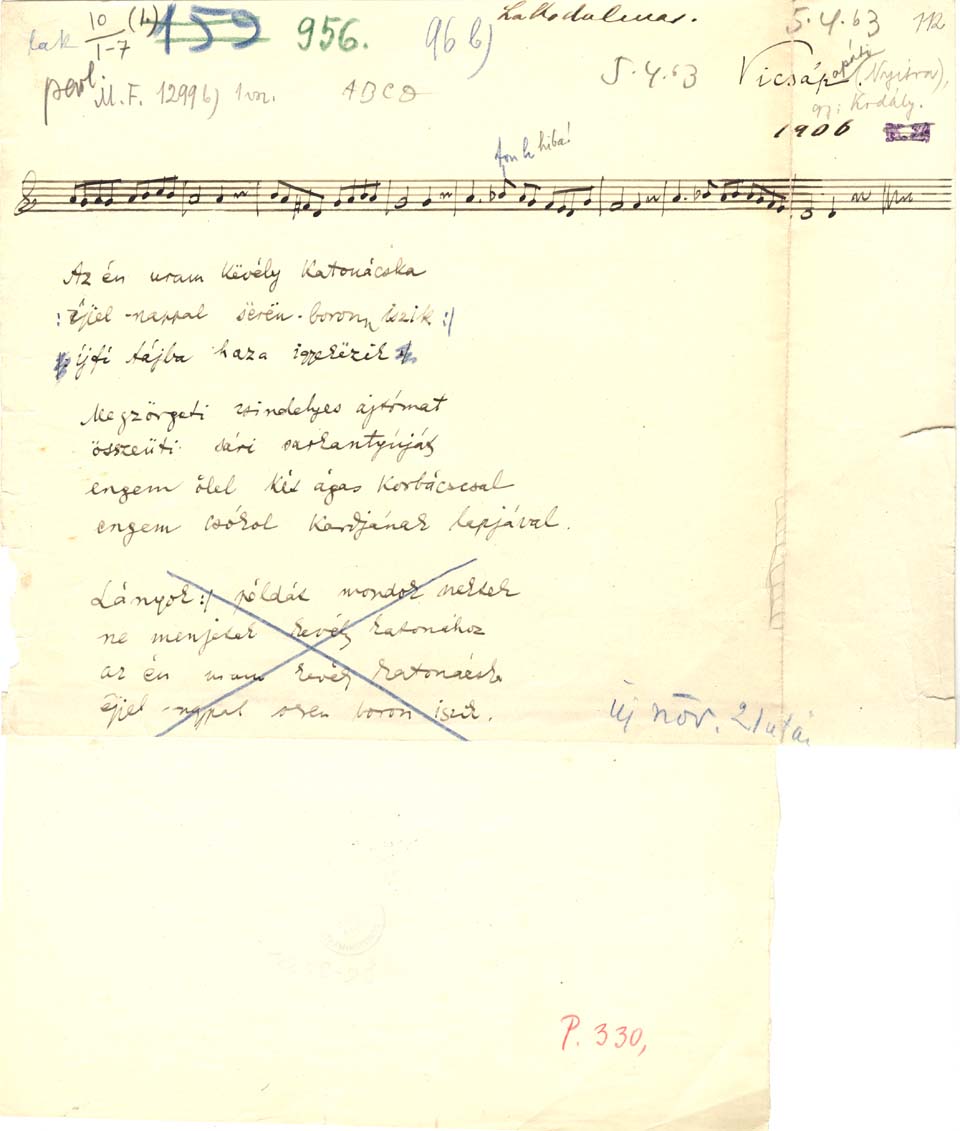 Lakodalmas.
lak 10 / 1-7 (4) 159 956. 96 b) 5.4.63 112
5.4.63 Vicsápapáti (Nyitra),
M.F. 1299 b) 1 vn. ABCD gy: Kodály.
1906
fonh hiba!
Az én uram këvély katonácska
:éjjel-nappal sërën-boronn iszik:/
éjfí tájba haza igyekëzik
Megzörgeti zsindelyes ajtómat
összeüti sári sarkantyúját
engem ölel két ágas korbácscsal
engem csókol kardjának lapjával.
Lányok:/ példát mondok nektek
ne menjetek kevély katonához
az én uram kevély katonácska
éjjel-nappal seren boron iszik.
Új növ. 21 után
P. 330,